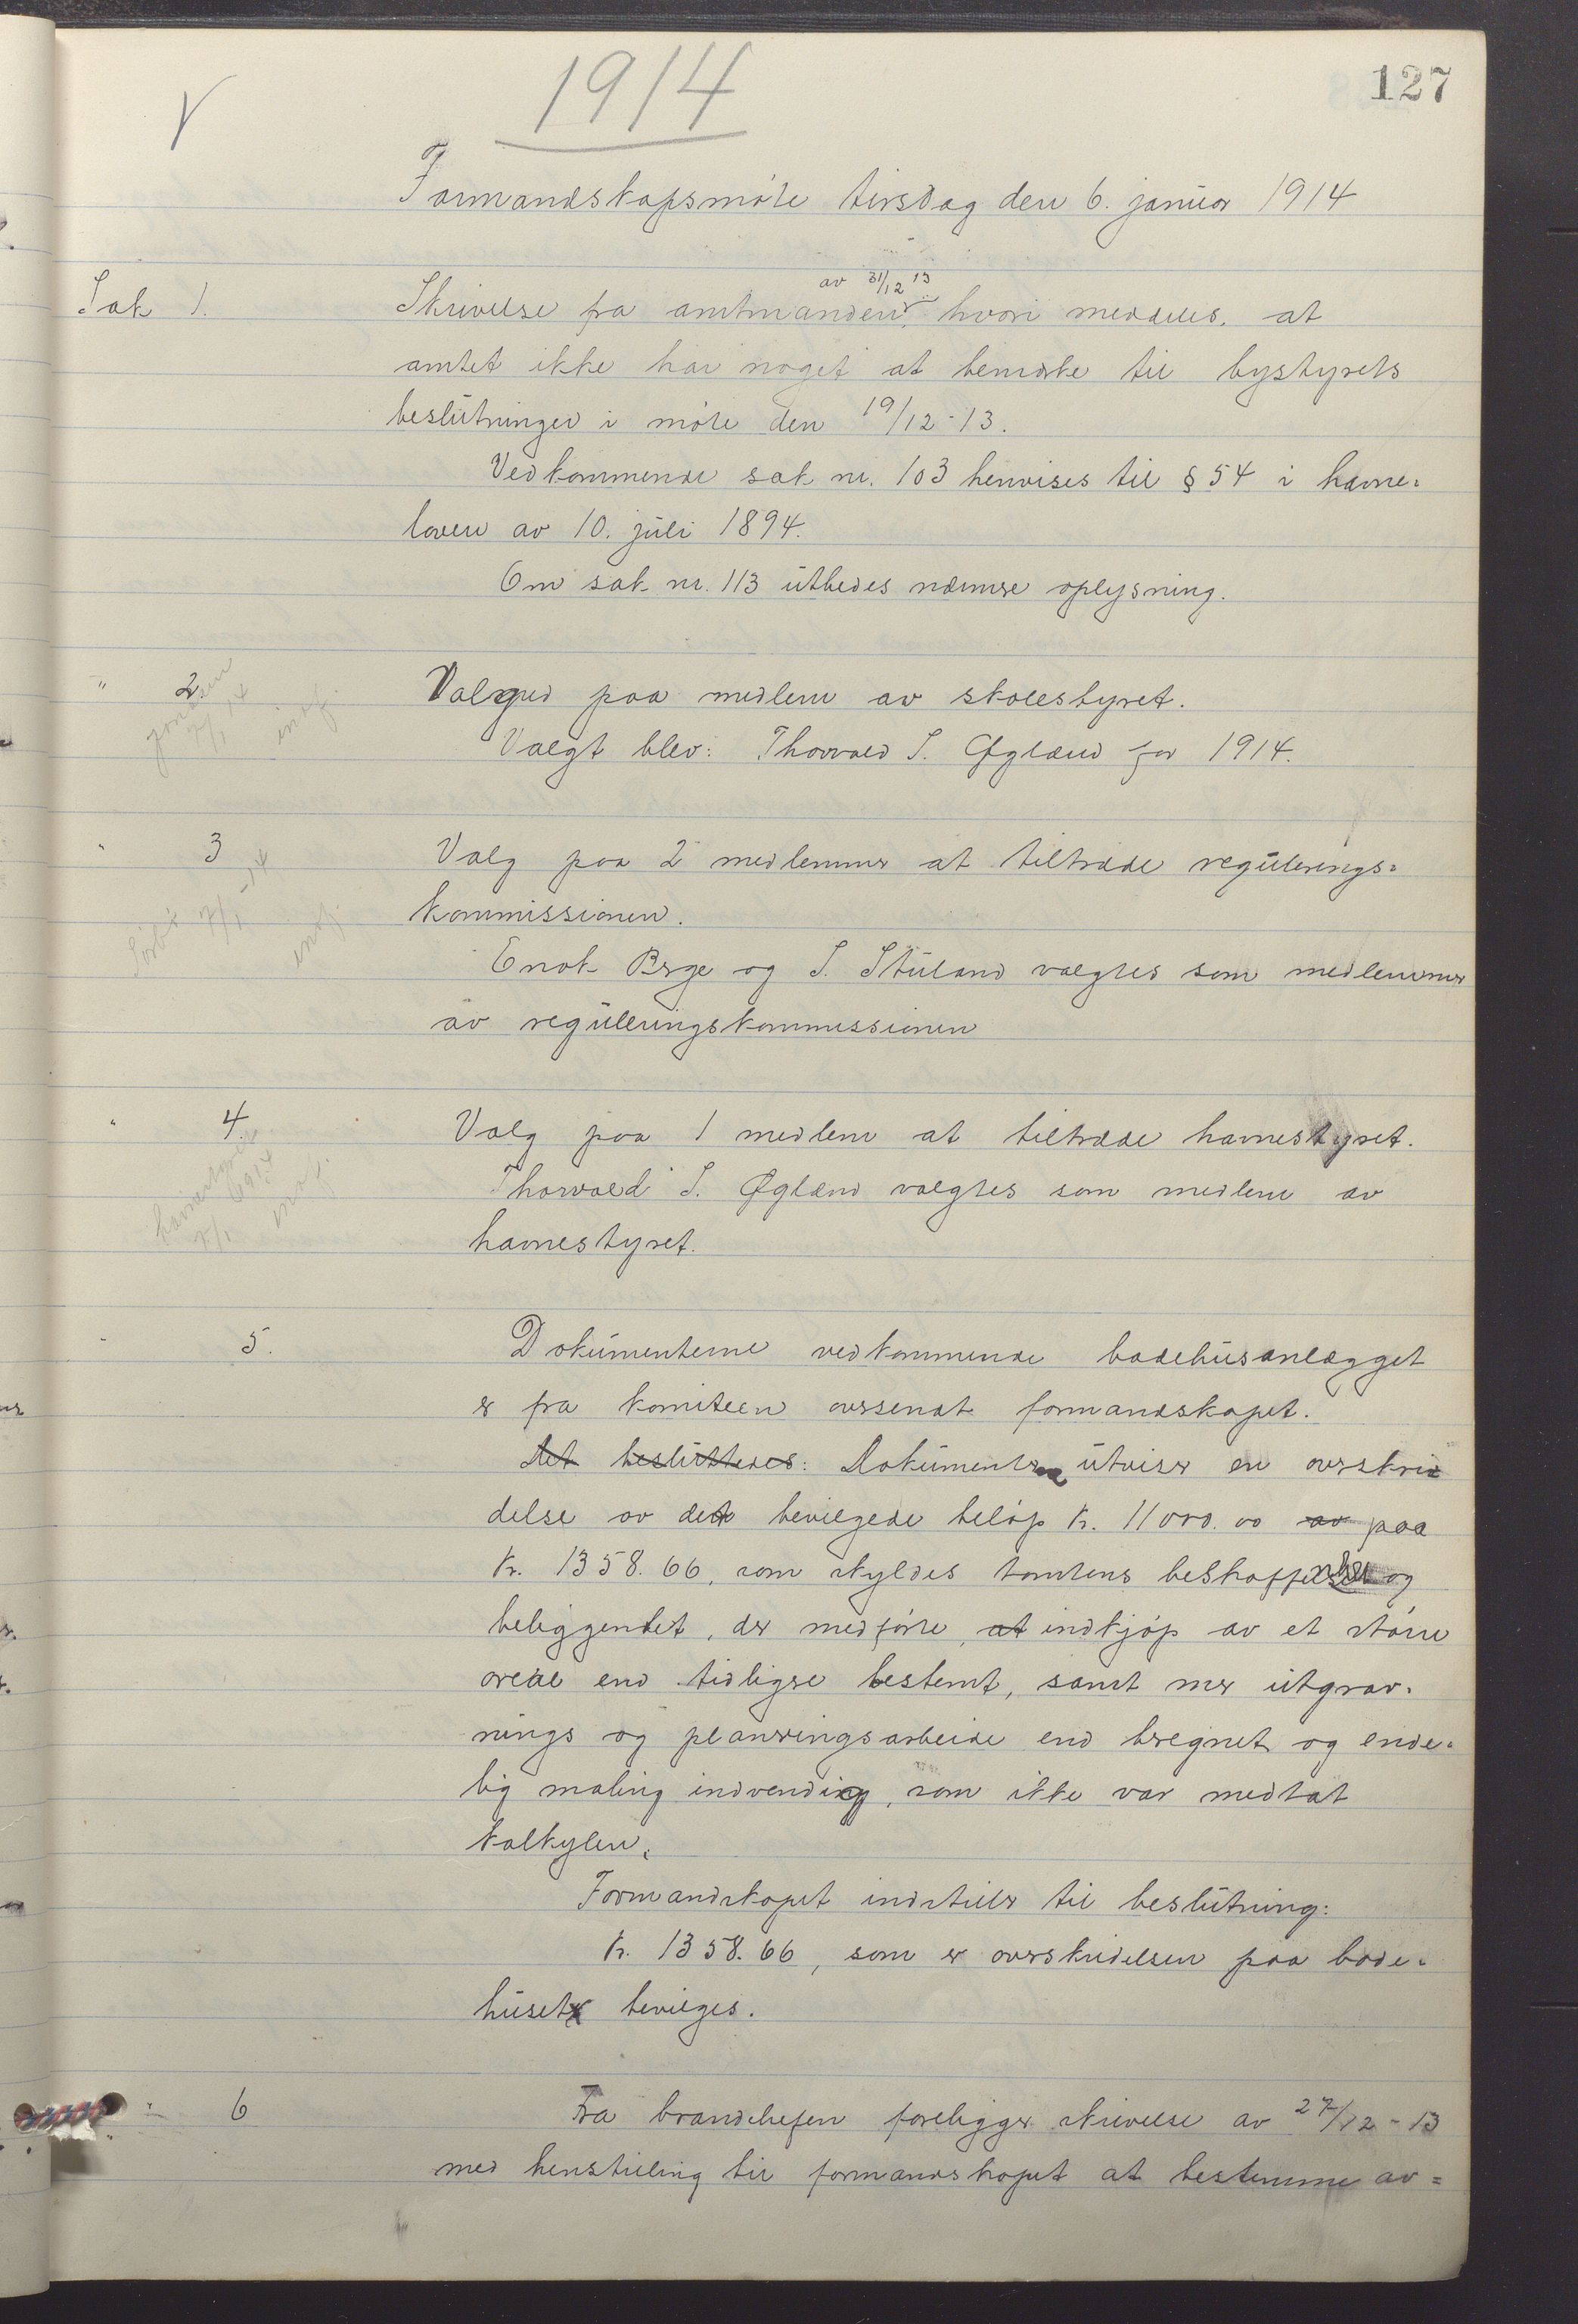 127
1914
Formandskapsmöte tirsdag den 6. januar 1914
Sak 1. Skrivelse fra amtmanden av 31/12 13, hvori meddeles, at
amtet ikke har noget at bemærke til bystyrets
beslutninger i möte den 19/12-13.
Vedkommende sak nr. 103 henvises til § 54 i havne=
loven av 10. juli 1894.
Om sak nr. 113 utbedes nærmere oplysning.
" 2. Valg paa medlem av skolestyret.
7/1 14 indf.
Valgt blev: Thorvald S. Øglænd for 1914.
" 3 Valg paa 2 medlemmer at tiltræde regulerings=
7/1-14 indf.
kommissionen.
Enok Berge og S. Stuland valgtes som medlemmer
av reguleringskommissionen
" 4. Valg paa 1 medlem at tiltræde havnestyret.
havnestyret 7/1 1914 indf.
Thorvald S. Øglænd valgtes som medlem av
havnestyret.
" 5. Dokumenterne vedkommende badehusanlægget
er fra komiteen oversendt formandskapet.
Det besluttedes: Dokumenterne utviser en overskri
delse av det bevilgede belöp kr. 11000.00 av paa
kr. 1358.66, som skyldes tomtens beskaffenhet og
beliggenhet, der medförte, at indkjöp av et större
areal end tidligere bestemt, samt mer utgrav=
nings og planeringsarbeide end beregnet og ende=
lig maling indvendig, som ikke var medtat
kalkylen.
Formandskapet indstiller til beslutning:
Kr. 1358.66, som er overskridelsen paa bade=
huset bevilges.
" 6 Fra brandchefen foreligger skrivelse av 27/12-13
med henstilling til formandskapet at bestemme av=